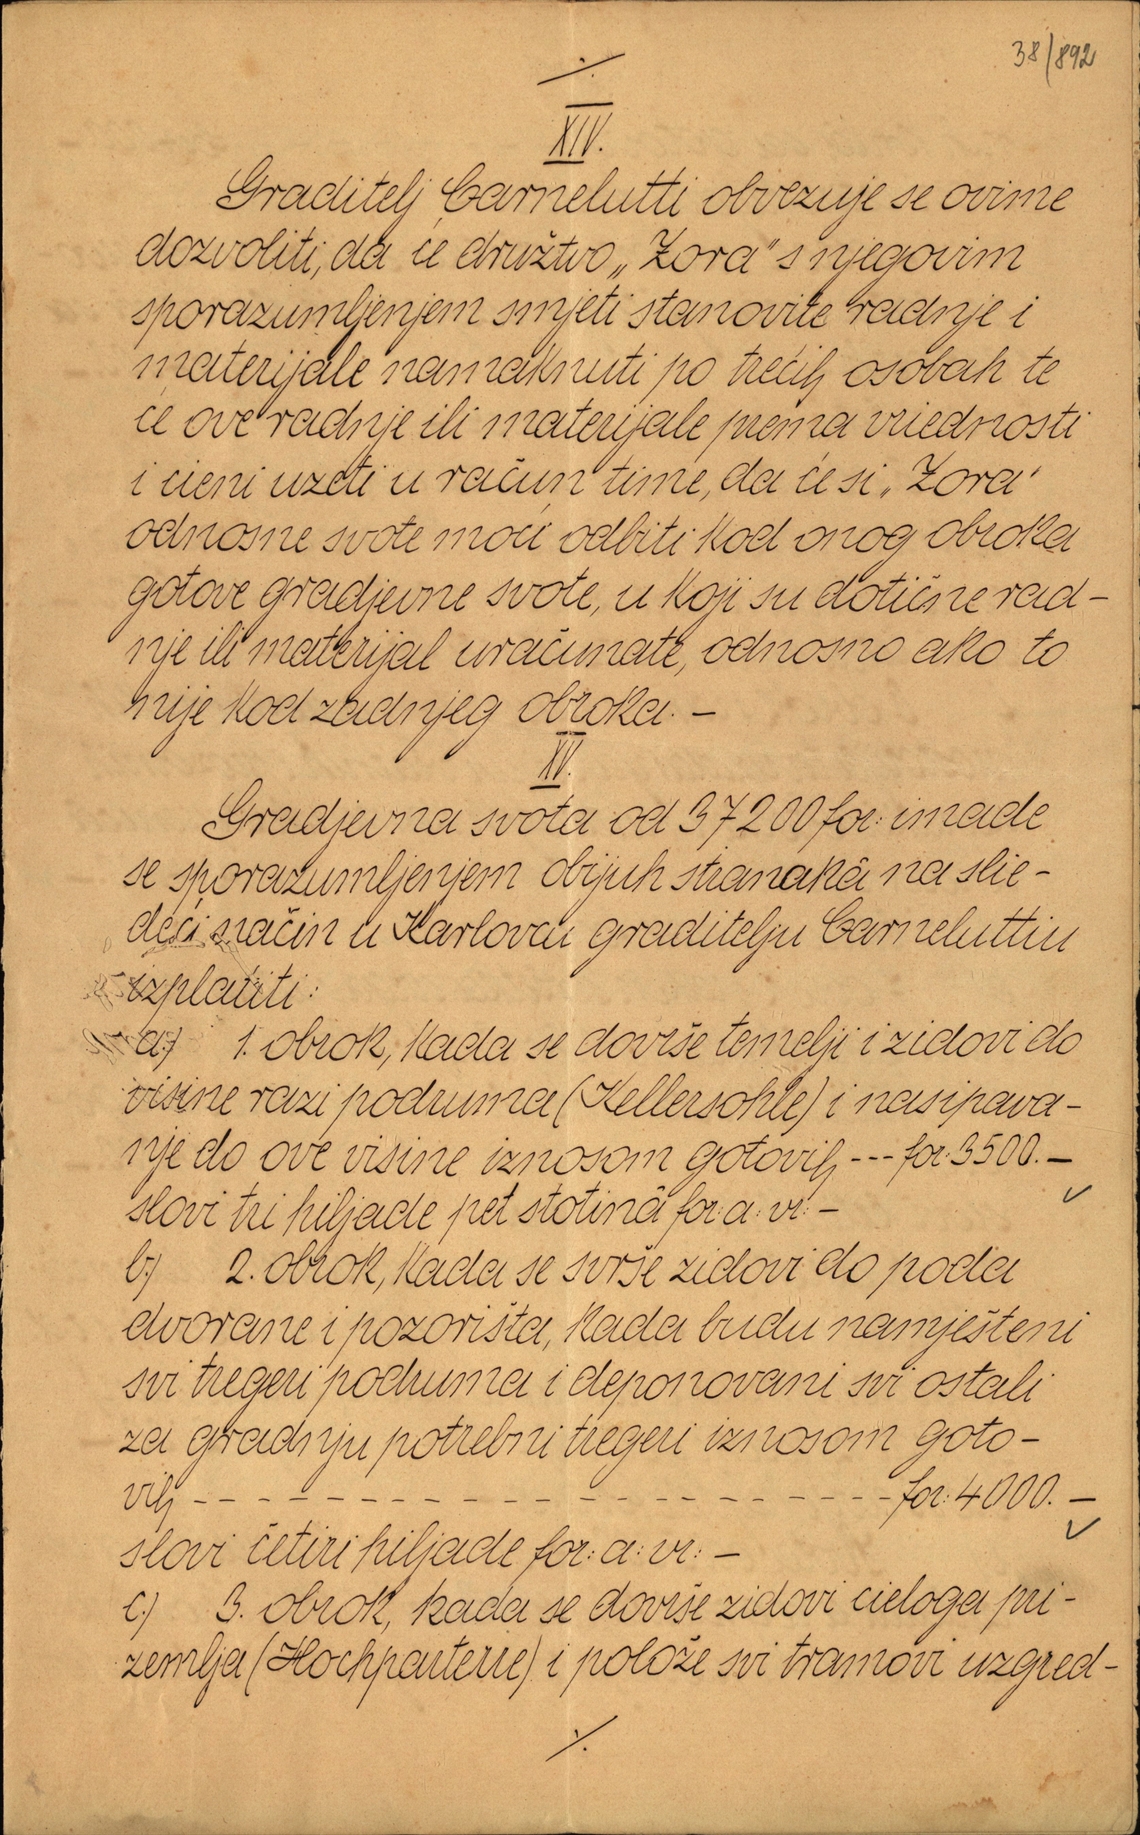 38/892
·/.
XIV.
Graditelj Carnelutti obvezuje se ovime
dozvoliti, da će družtvo „Zora" s njegovim
sporazumljenjem smjeti stanovite radnje i
materijale namaknuti po trećih osobah te
će ove radnje ili materijale prema vriednosti
i cieni uzeti u račun time, da će si „Zora"
odnosne svote moći odbiti kod onog obroka
gotove gradjevne svote, u koji su dotične rad-
nje ili materijal uračunate, odnosno ako to
nije kod zadnjeg obroka. –
XV.
Gradjevna svota od 37200 for: imade
se sporazumljenjem obijuh stranakâ na slie-
deći način u Karlovcu graditelju Carneluttiu
izplatiti:
a.) 1. obrok, kada se dovrše temelji i zidovi do
visine razi podruma (Kellersohle) i nasipava-
nje do ove visine iznosom gotovih --- for: 3500. –
slovi tri hiljade pet stotinâ for: a: vr: –
b.) 2. obrok, kada se svrše zidovi do poda
dvorane i pozorišta, kada budu namješteni
svi tregeri podruma i deponovani svi ostali
za gradnju potrebni tregeri iznosom goto-
vih - - - - - - - - - - - - - - - - - - - - - - for: 4000. –
slovi četiri hiljade for: a: vr: –
c.) 3. obrok, kada se dovrše zidovi cieloga pri-
zemlja (Hochparterre) i polože svi tramovi uzgred-
·/.